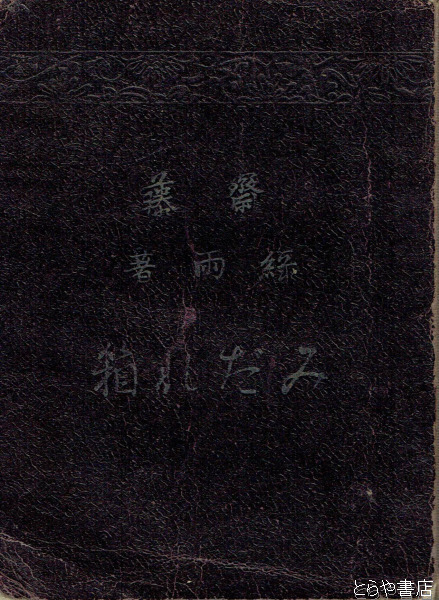 齋藤
綠雨著
みだれ箱
とらや書店